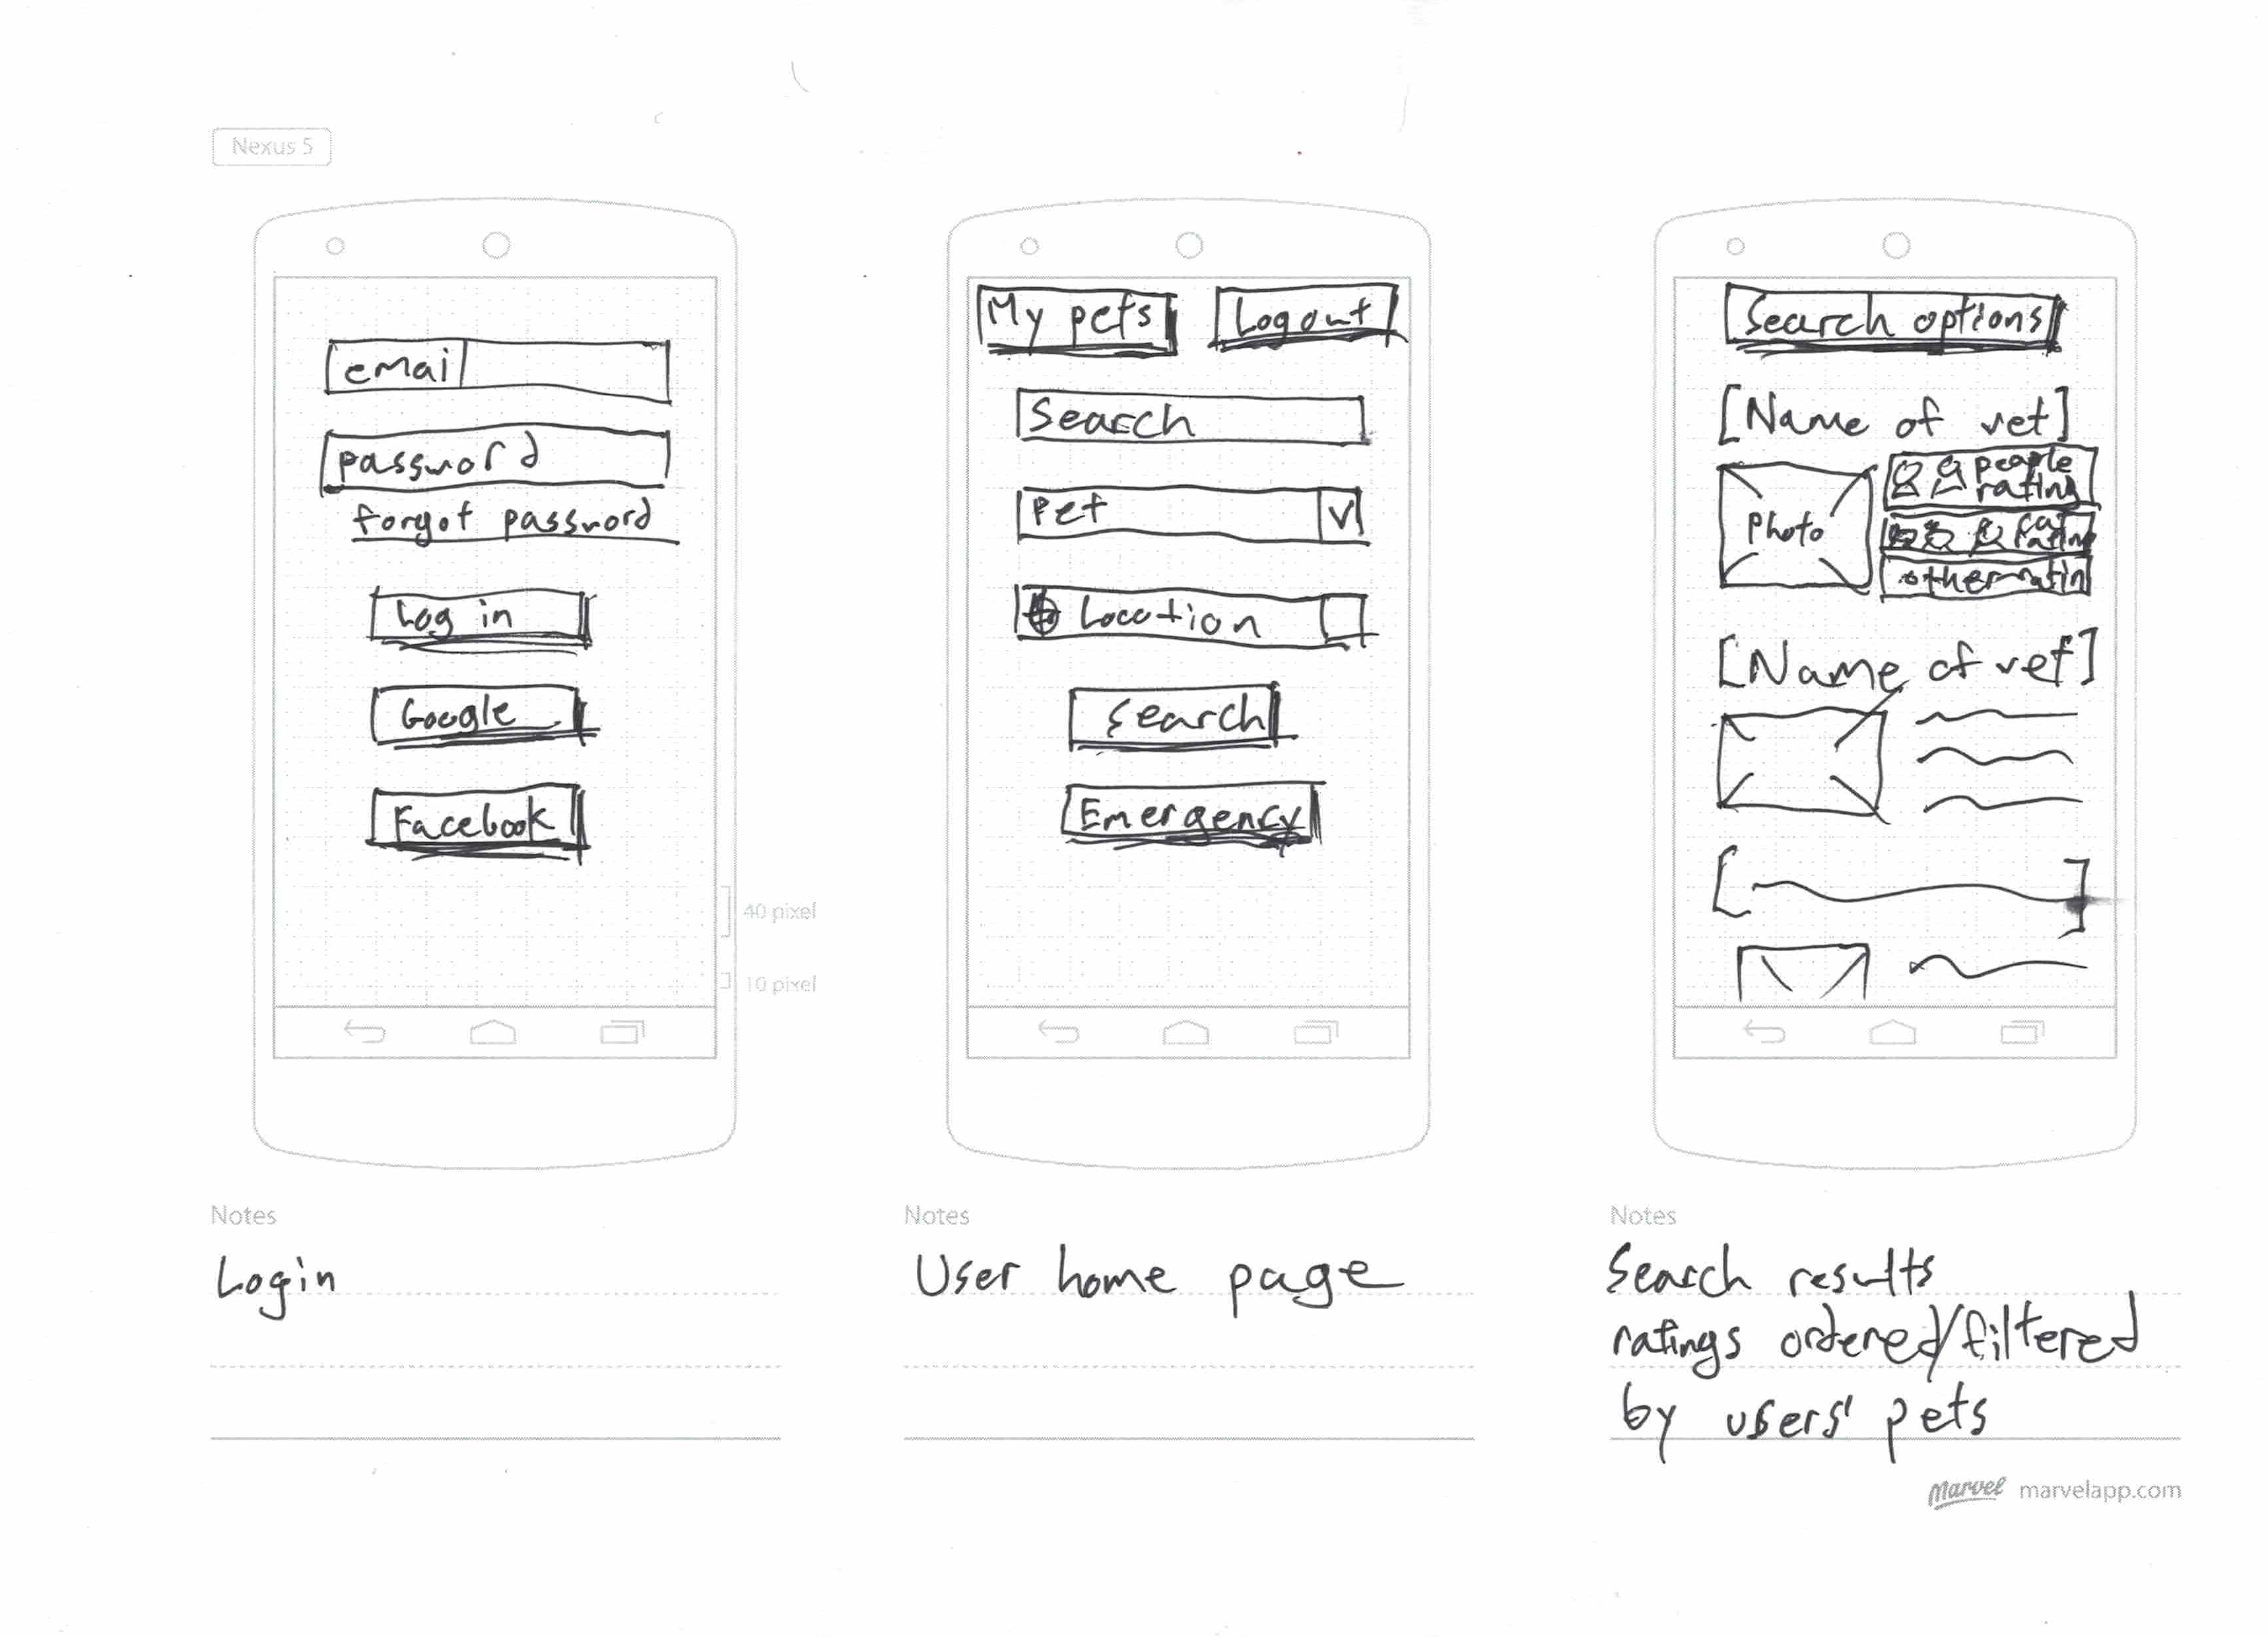 Nexus 5
emai
password
forgot password
Log in
Google
Facebook
40 pixel
10 pixel
Notes
Login
My pets
Logout
Search
Pet
V
Location
Search
Emergency
Notes
User home page
Search options
[Name of vet]
Photo
people
rating
cat
rating
other ratin
[Name of vet]
Notes
Search results
ratings ordered/filtered
by users' pets
Marvel marvelapp.com